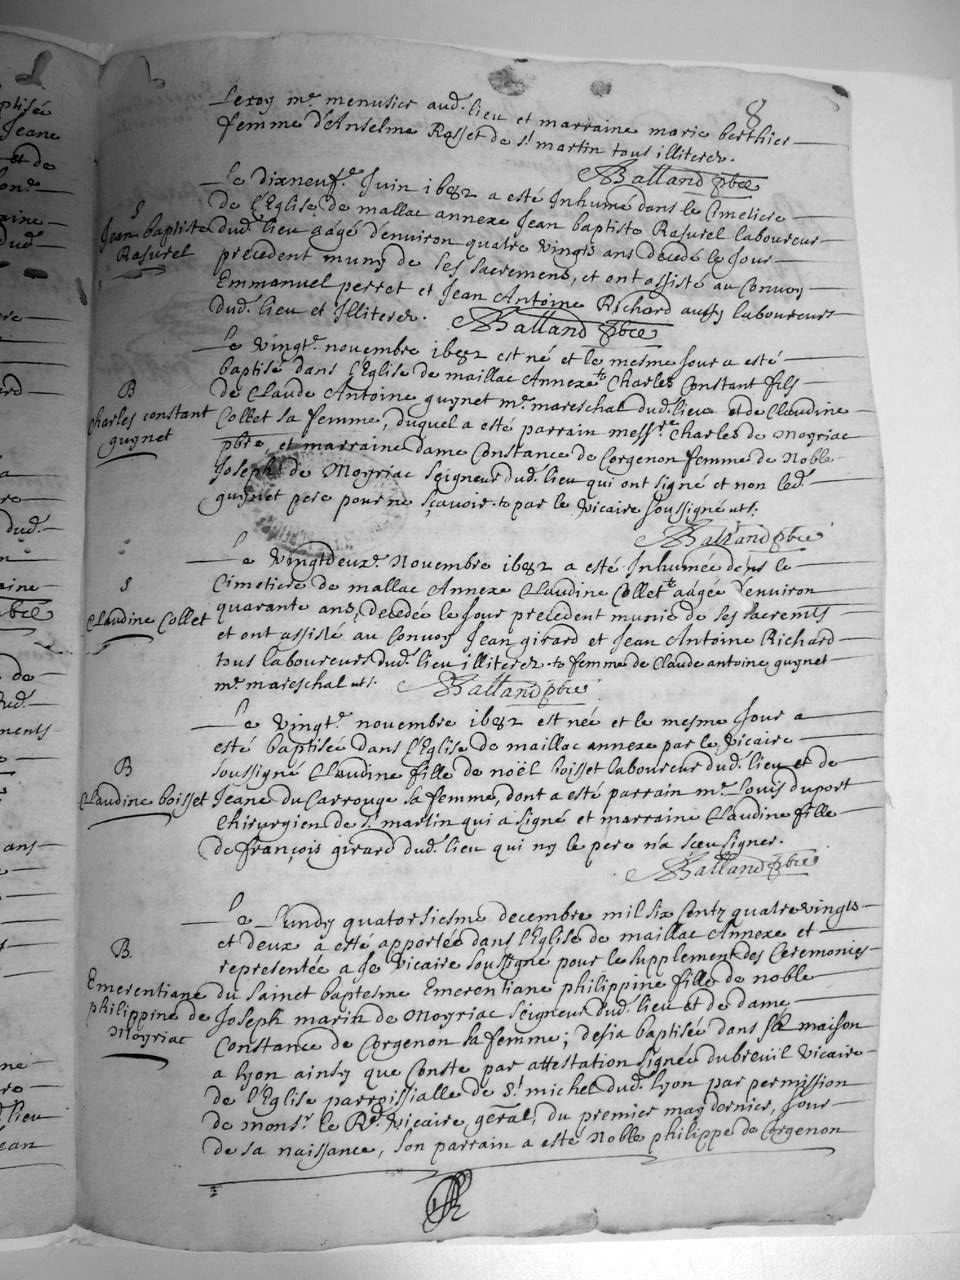 8
Leroy me. menusier aud. lieu et marraine marie berthier
femme d'Anselme Rasset de st. martin tous illiterez.
Balland pbre
S
Jean baptiste
Rasurel
Le dixneuf.e Juin 1682 a esté Inhumé dans le Cimetiere
de l'Eglise de mallac annexe Jean baptiste Rasurel laboureur
dud. lieu aagé d'environ quatre vingts ans decedé le Jour
precedent muny de ses sacremens, et ont assisté au Convoy
Emmanuel perret et Jean Antoine Richard aussy laboureurs
dud. lieu et Illiterez. Balland pbre
B
charles constant
guynet
Le vingt.e novembre 1682 est né et le mesme Jour a esté
baptisé dans l'Eglise de maillac Annexe Charles Constant fils
de Claude Antoine guynet me. mareschal dud. lieu et de Claudine
Collet sa femme, duquel a esté parrain messre. Charles de Moyriac
pbre, et marraine dame Constance de Corgenon femme de Noble
Joseph de Moyriac Seigneur dud. lieu qui ont signé et non led.
guynet pere pour ne sçavoir. par le vicaire soussigné
Balland pbre
S
Claudine Collet
Le vingtdeux.e Novembre 1682 a esté Inhumée dans le
Cimetiere de mallac Annexe Claudine Collet aagée d'environ
quarante ans, decedée le Jour precedent munie de ses sacremts
et ont assisté au Convoy Jean girard et Jean Antoine Richard
tous laboureurs dud. lieu illiterez. femme de Claude antoine guynet
me. mareschal Balland pbre
B
Claudine boisset
Le vingt.e novembre 1682 est née et le mesme Jour a
esté baptisée dans l'Eglise de maillac annexe par le vicaire
soussigné Claudine fille de noël boisset laboureur dud. lieu et de
Jeane du Carrouge sa femme, dont a esté parrain me. Louis duport
Chirurgien de st. martin qui a signé et marraine Claudine fille
de françois girard dud. lieu qui ny le pere n'a sceu signer.
Balland pbre
B
Emerentiane
philippine de
Moyriac
Le Lundy quatorsiesme decembre mil six Centz quatre vingts
et deux a esté apportée dans l'Eglise de maillac Annexe et
representée a Je vicaire soussigné pour le supplement des Ceremonies
du sainct baptesme Emerentiane philippine fille de noble
Joseph marin de Moyriac Seigneur dud. lieu et de dame
Constance de Corgenon sa femme; desia baptisée dans sa maison
a lyon ainsy que Conste par attestation signée dubreuil vicaire
de l'Eglise parroissialle de St. michel dud. lyon par permission
de monsr. le Rd. vicaire general, du premier may dernier, Jour
de sa naissance, son parrain a esté Noble philippe de Corgenon